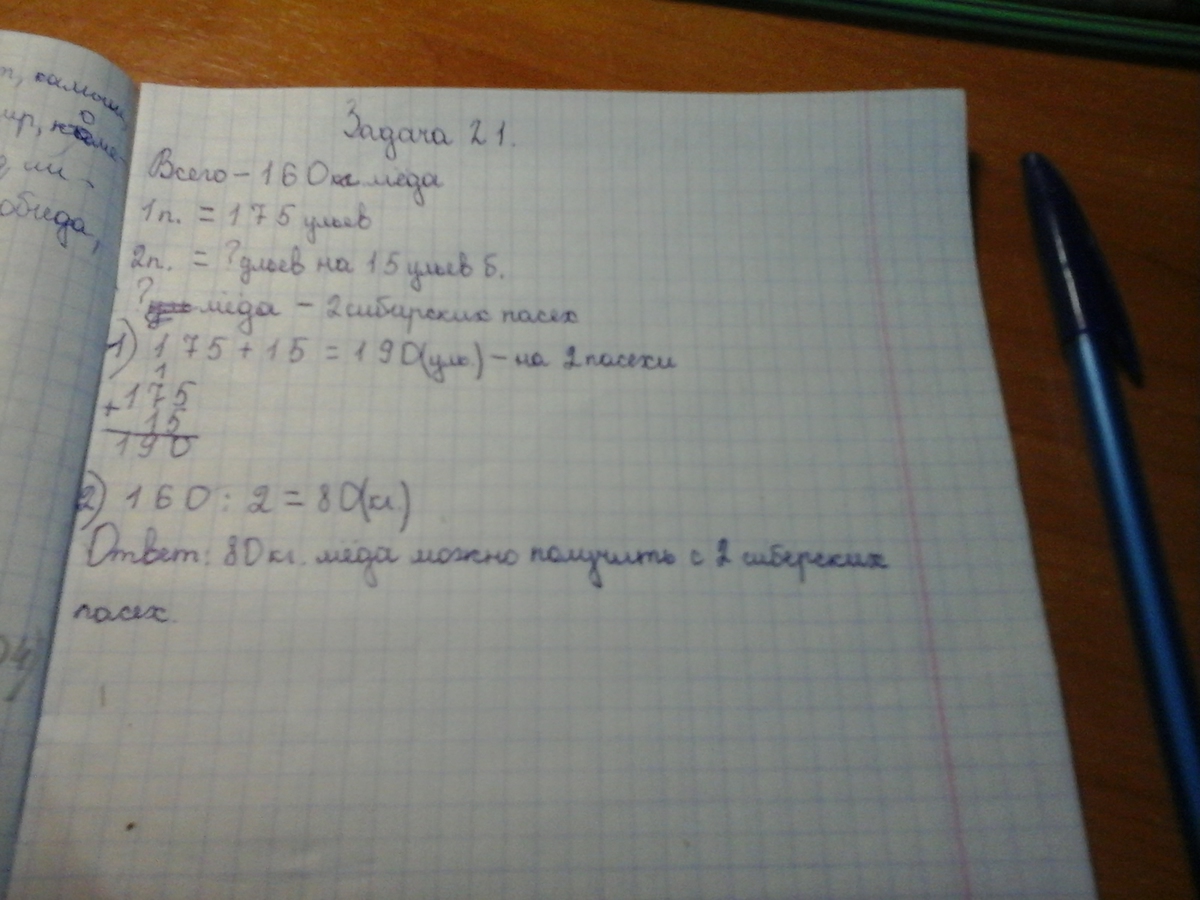 т, камыш,
ир, коме-
обида,
Задача 21.
Всего – 160 кг мёда
1п. = 175 ульев
2п. = ? ульев на 15 ульев б.
? мёда – 2 сибирских пасек
1) 175 + 15 = 190 (ул.) – на 2 пасеки
1
175
+ 15
190
2) 160 : 2 = 80 (кг.)
Ответ: 80 кг. мёда можно получить с 2 сиберских
пасек.
04)